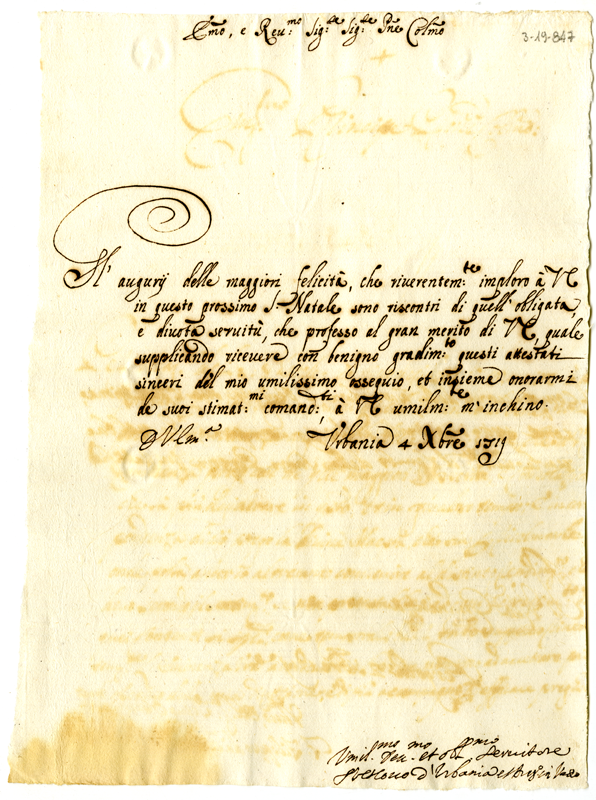 Emo, e Reu:mo Sig:re Sig:re Pne Colmo
3-19-847
Gl' augurij delle maggiori felicità, che riuerentem:te imploro à VE
in questo prossimo S. Natale sono riscontri di quell' obligata,
e diuota seruitù, che professo al gran merito di VE, quale
supplicando riceuere con benigno gradim:to questi attestati
sinceri del mio umilissimo ossequio, et insieme onorarmi
de suoi stimat:mi comand:ti, à VE umilm:te m' inchino.
D V Em:a Vrbania 4 Xbre 1719
Vmil.mo Deu.mo et obl.mo Seruitore
Vescouo d' Vrbania et